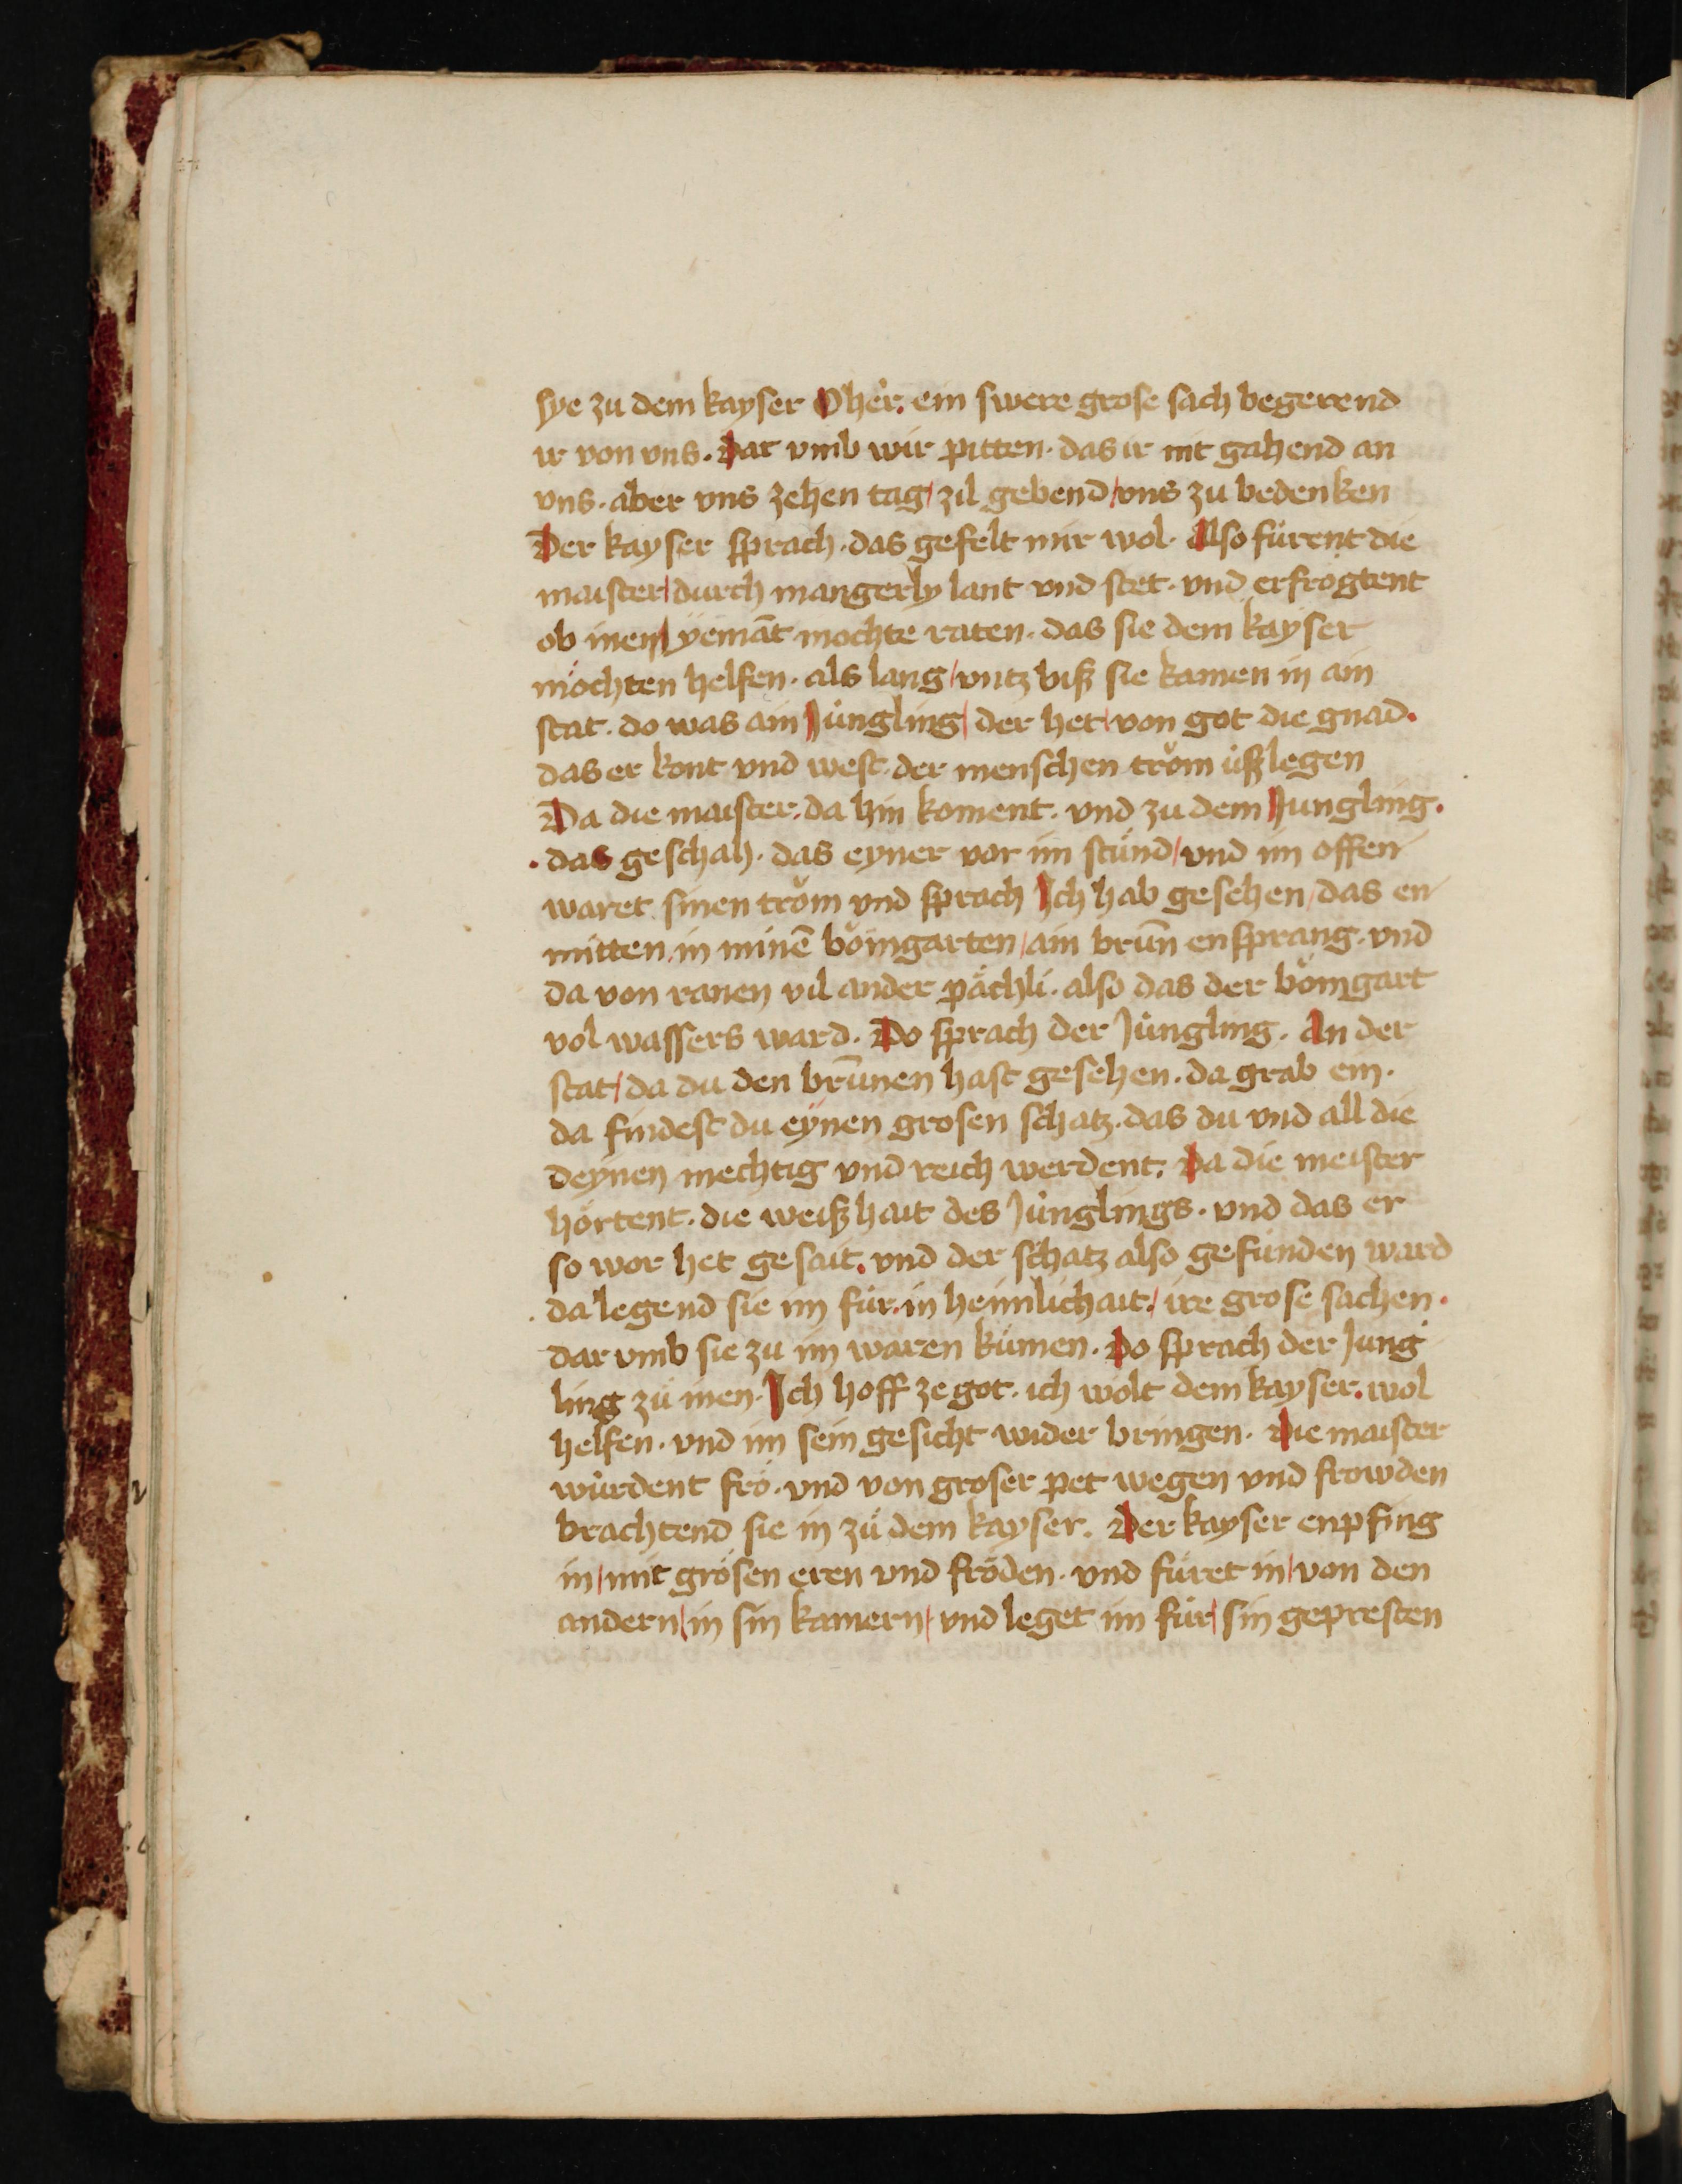 sye zu dem kayser O her. ein swere grose sach begerend
ir von vns. Dar vmb wir pitten. das ir nit gahend an
vns. aber vns zehen tag / zil gebend / vns zu bedenken
Der kayser sprach. das gefelt mir wol. Also fürent die
maister / durch mangerly lant vnd stet. vnd erfrögtent
ob inen / yemāt mochte raten. das sie dem kayser
möchten helfen. als lang / vntz biß sie kamen in ain
stat. do was ain Jüngling / der het / von got die gnad.
das er kont vnd west. der menschen trom ußlegen
Da die maister. da hin koment. vnd zu dem Jungling.
. das geschah. das eyner vor im stůnd / vnd im offen
waret sinen trom vnd sprach Ich hab gesehen / das en
mitten. in minē bömgarten / ain brūn ensprang. vnd
da von ranen vil ander pächli. also das der bömgart
vol wassers ward. Do sprach der Jüngling. An der
stat / da du den brūnen hast gesehen. da grab ein.
da findest du eynen grosen schatz. das du vnd all die
deynen mechtig vnd reich werdent. Da die meister
hörtent. die weißhait des Jünglings. vnd das er
so wor het gesait. vnd der schatz also gefunden ward
. da legend sie im für. in heimlichait. / ire grose sachen.
dar vmb sie zu im waren kumen. Do sprach der Jung
ling zů inen. Ich hoff ze got. ich wolt dem kayser. wol
helfen. vnd im sein gesicht wider bringen. Die maister
wurdent fro. vnd von groser pet wegen vnd frowden
brachtend sie in zů dem kayser. Der kayser enpfing
in / mit grosen eren vnd fröden. vnd füret in / von den
andern / in sin kamern / vnd leget im für / sin gepresten